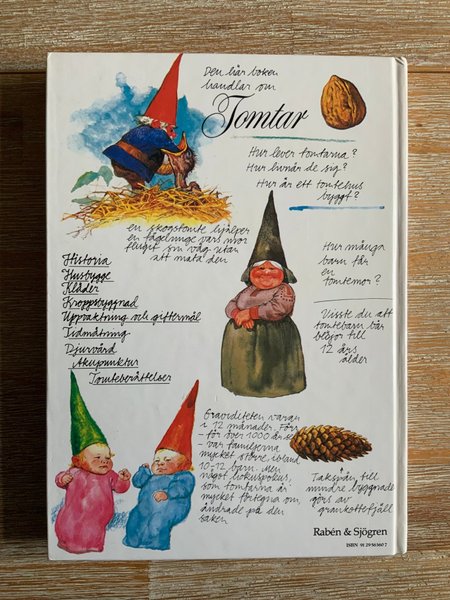 Den här boken
handlar om
Tomtar
Hur lever tomtarna?
Hur livnär de sig?
Hur är ett tomtehus
byggt?
en skogstomte hjälper
en fågelunge vars mor
flugit sin väg utan
att mata den
Historia
Husbygge
Kläder
Kroppsbyggnad
Uppvaktning och giftermål
Tidmätning
Djurvård
Akupunktur
Tomteberättelser
Hur många
barn får
en
tomtemor?
Visste du att
tomtebarn bär
blöjor till
12 års
ålder
Graviditeten varar
i 12 månader. Förr
- för över 1000 år se
- var familjerna
mycket större, ibland
10-12 barn. Men
något hokuspokus,
som tomtarna är
mycket förtegna om
ändrade på den
saken
Takspån till
mindre byggnader
görs av
grankottefjäll
Rabén & Sjögren
ISBN 91 29 56360 7